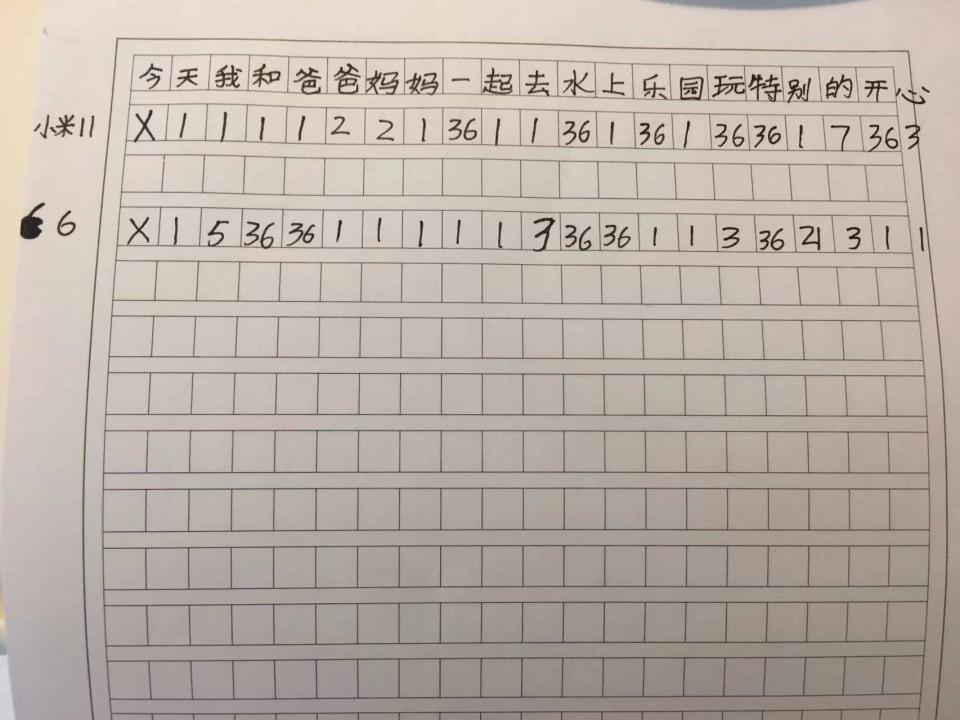 今天我和爸爸妈妈一起去水上乐园玩特别的开心
小米11 X 1 1 1 1 2 2 1 36 1 1 36 1 36 1 36 36 1 7 36 3
6 X 1 5 36 36 1 1 1 1 1 3 36 36 1 1 3 36 21 3 1 1